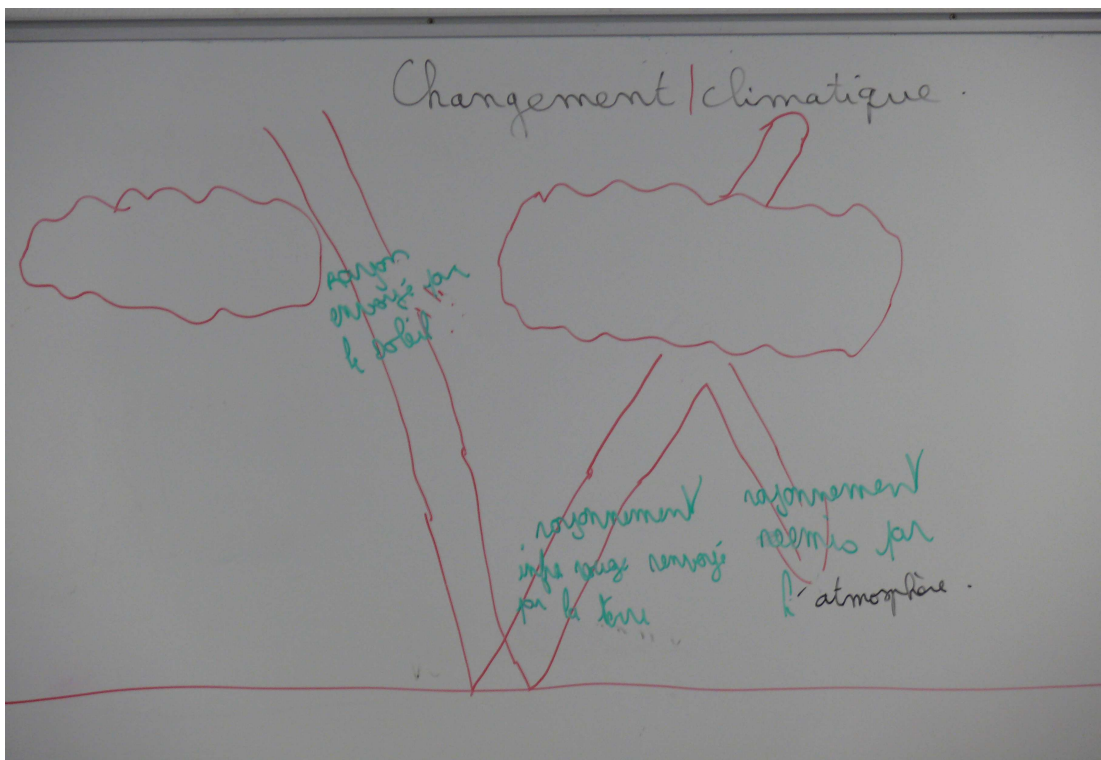 Changement climatique.
rayon
envoyé par
le soleil
rayonnement
infra rouge renvoyé
par la terre
rayonnement
réemis par
l'atmosphère.